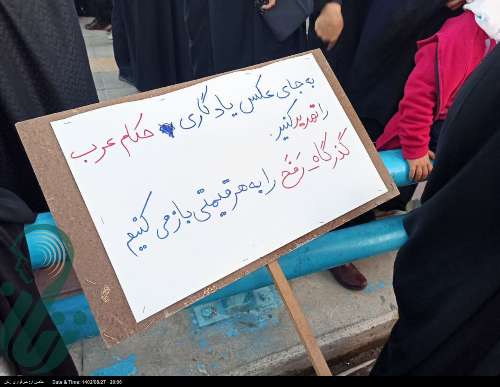 به جای عکس یادگاری حکام عرب
را تهدید کنید.
گذرگاه رَفَح را به هر قیمتی باز می کنیم
Date & Time: 1402/08/27 - 20:06